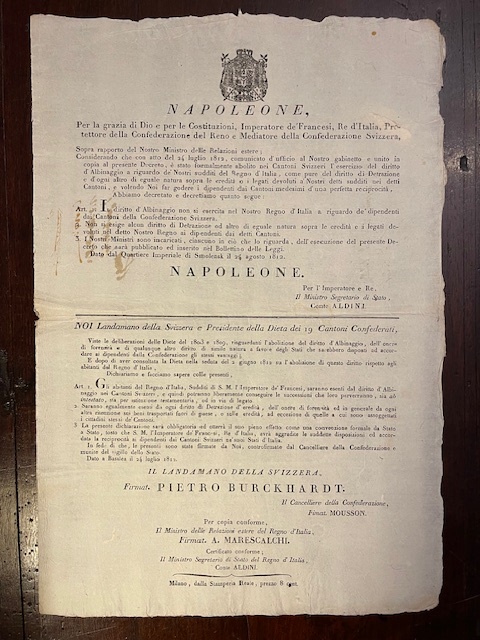 NAPOLEONE,
Per la grazia di Dio e per le Costituzioni, Imperatore de' Francesi, Re d'Italia, Pro-
tettore della Confederazione del Reno e Mediatore della Confederazione Svizzera,
Sopra rapporto del Nostro Ministro delle Relazioni estere;
Considerando che con atto del 24 luglio 1812, comunicato d'ufficio al Nostro gabinetto e unito in
copia al presente Decreto, è stato formalmente abolito nei Cantoni Svizzeri l'esercizio del diritto
d'Albinaggio a riguardo de' Nostri sudditi del Regno d'Italia, come pure del diritto di Detrazione
e d'ogni altro di eguale natura sopra le eredità e i legati devoluti a' Nostri detti sudditi nei detti
Cantoni, e volendo Noi far godere i dipendenti dai Cantoni medesimi d'una perfetta reciprocità,
Abbiamo decretato e decretiamo quanto segue:
Art. 1. Il diritto d'Albinaggio non si esercita nel Nostro Regno d'Italia a riguardo de' dipendenti
dai Cantoni della Confederazione Svizzera.
2. Non si esige alcun diritto di Detrazione od altro di eguale natura sopra le eredità e i legati de-
voluti nel detto Nostro Regno ai dipendenti dai detti Cantoni.
3. I Nostri Ministri sono incaricati, ciascuno in ciò che lo riguarda, dell'esecuzione del presente De-
creto che sarà pubblicato ed inserito nel Bollettino delle Leggi.
Dato dal Quartiere Imperiale di Smolensk il 24 agosto 1812.
NAPOLEONE.
Per l'Imperatore e Re,
Il Ministro Segretario di Stato,
Conte ALDINI.
NOI Landamano della Svizzera e Presidente della Dieta dei 19 Cantoni Confederati,
Viste le deliberazioni delle Diete del 1803 e 1809, risguardanti l'abolizione del diritto d'Albinaggio, dell'onere
di forensità e di qualunque altro diritto di simile natura a favore degli Stati che sarebbero disposti ad accor-
dare ai dipendenti della Confederazione gli stessi vantaggi;
E dopo di aver consultata la Dieta nella seduta del 2 giugno 1812 su l'abolizione di questo diritto rispetto agli
abitanti del Regno d'Italia;
Dichiariamo e facciamo sapere colle presenti,
Art. 1. Gli abitanti del Regno d'Italia, Sudditi di S. M. l'Imperatore de' Francesi, saranno esenti dal diritto d'Albi-
naggio nei Cantoni Svizzeri, e quindi potranno liberamente conseguire le successioni che loro pervenissero, sia ab
intestato, sia per istituzione testamentaria, od in via di legato.
2. Saranno egualmente esenti da ogni diritto di Detrazione d'eredità, dell'onere di forensità ed in generale da ogni
altra esenzione sui beni trasportati fuori di paese, e sulle eredità, ad eccezione di quelle a cui sono assoggettati
i cittadini stessi de' Cantoni.
3. La presente dichiarazione sarà obbligatoria ed otterrà il suo pieno effetto come una convenzione formale da Stato
a Stato, tosto che S. M. l'Imperatore de' Francesi, Re d'Italia, avrà aggradite le suddette disposizioni ed accor-
data la reciprocità ai dipendenti dai Cantoni Svizzeri ne' suoi Stati d'Italia.
In fede di che, le presenti sono state firmate da Noi, controfirmate dal Cancelliere della Confederazione e
munite del sigillo dello Stato.
Dato a Basilea il 24 luglio 1812.
IL LANDAMANO DELLA SVIZZERA,
Firmat. PIETRO BURCKHARDT.
Il Cancelliere della Confederazione,
Firmat. MOUSSON.
Per copia conforme,
Il Ministro delle Relazioni estere del Regno d'Italia,
Firmat. A. MARESCALCHI.
Certificato conforme;
Il Ministro Segretario di Stato del Regno d'Italia,
Conte ALDINI.
Milano, dalla Stamperia Reale, prezzo 8 cent.